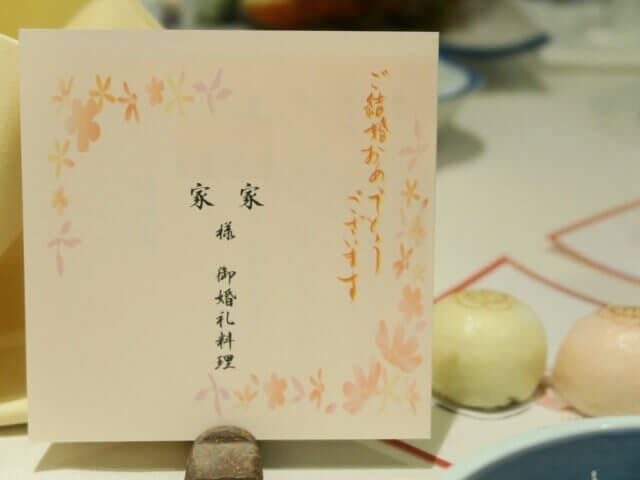 ご結婚おめでとう
ございます
家
家
様 御婚礼料理